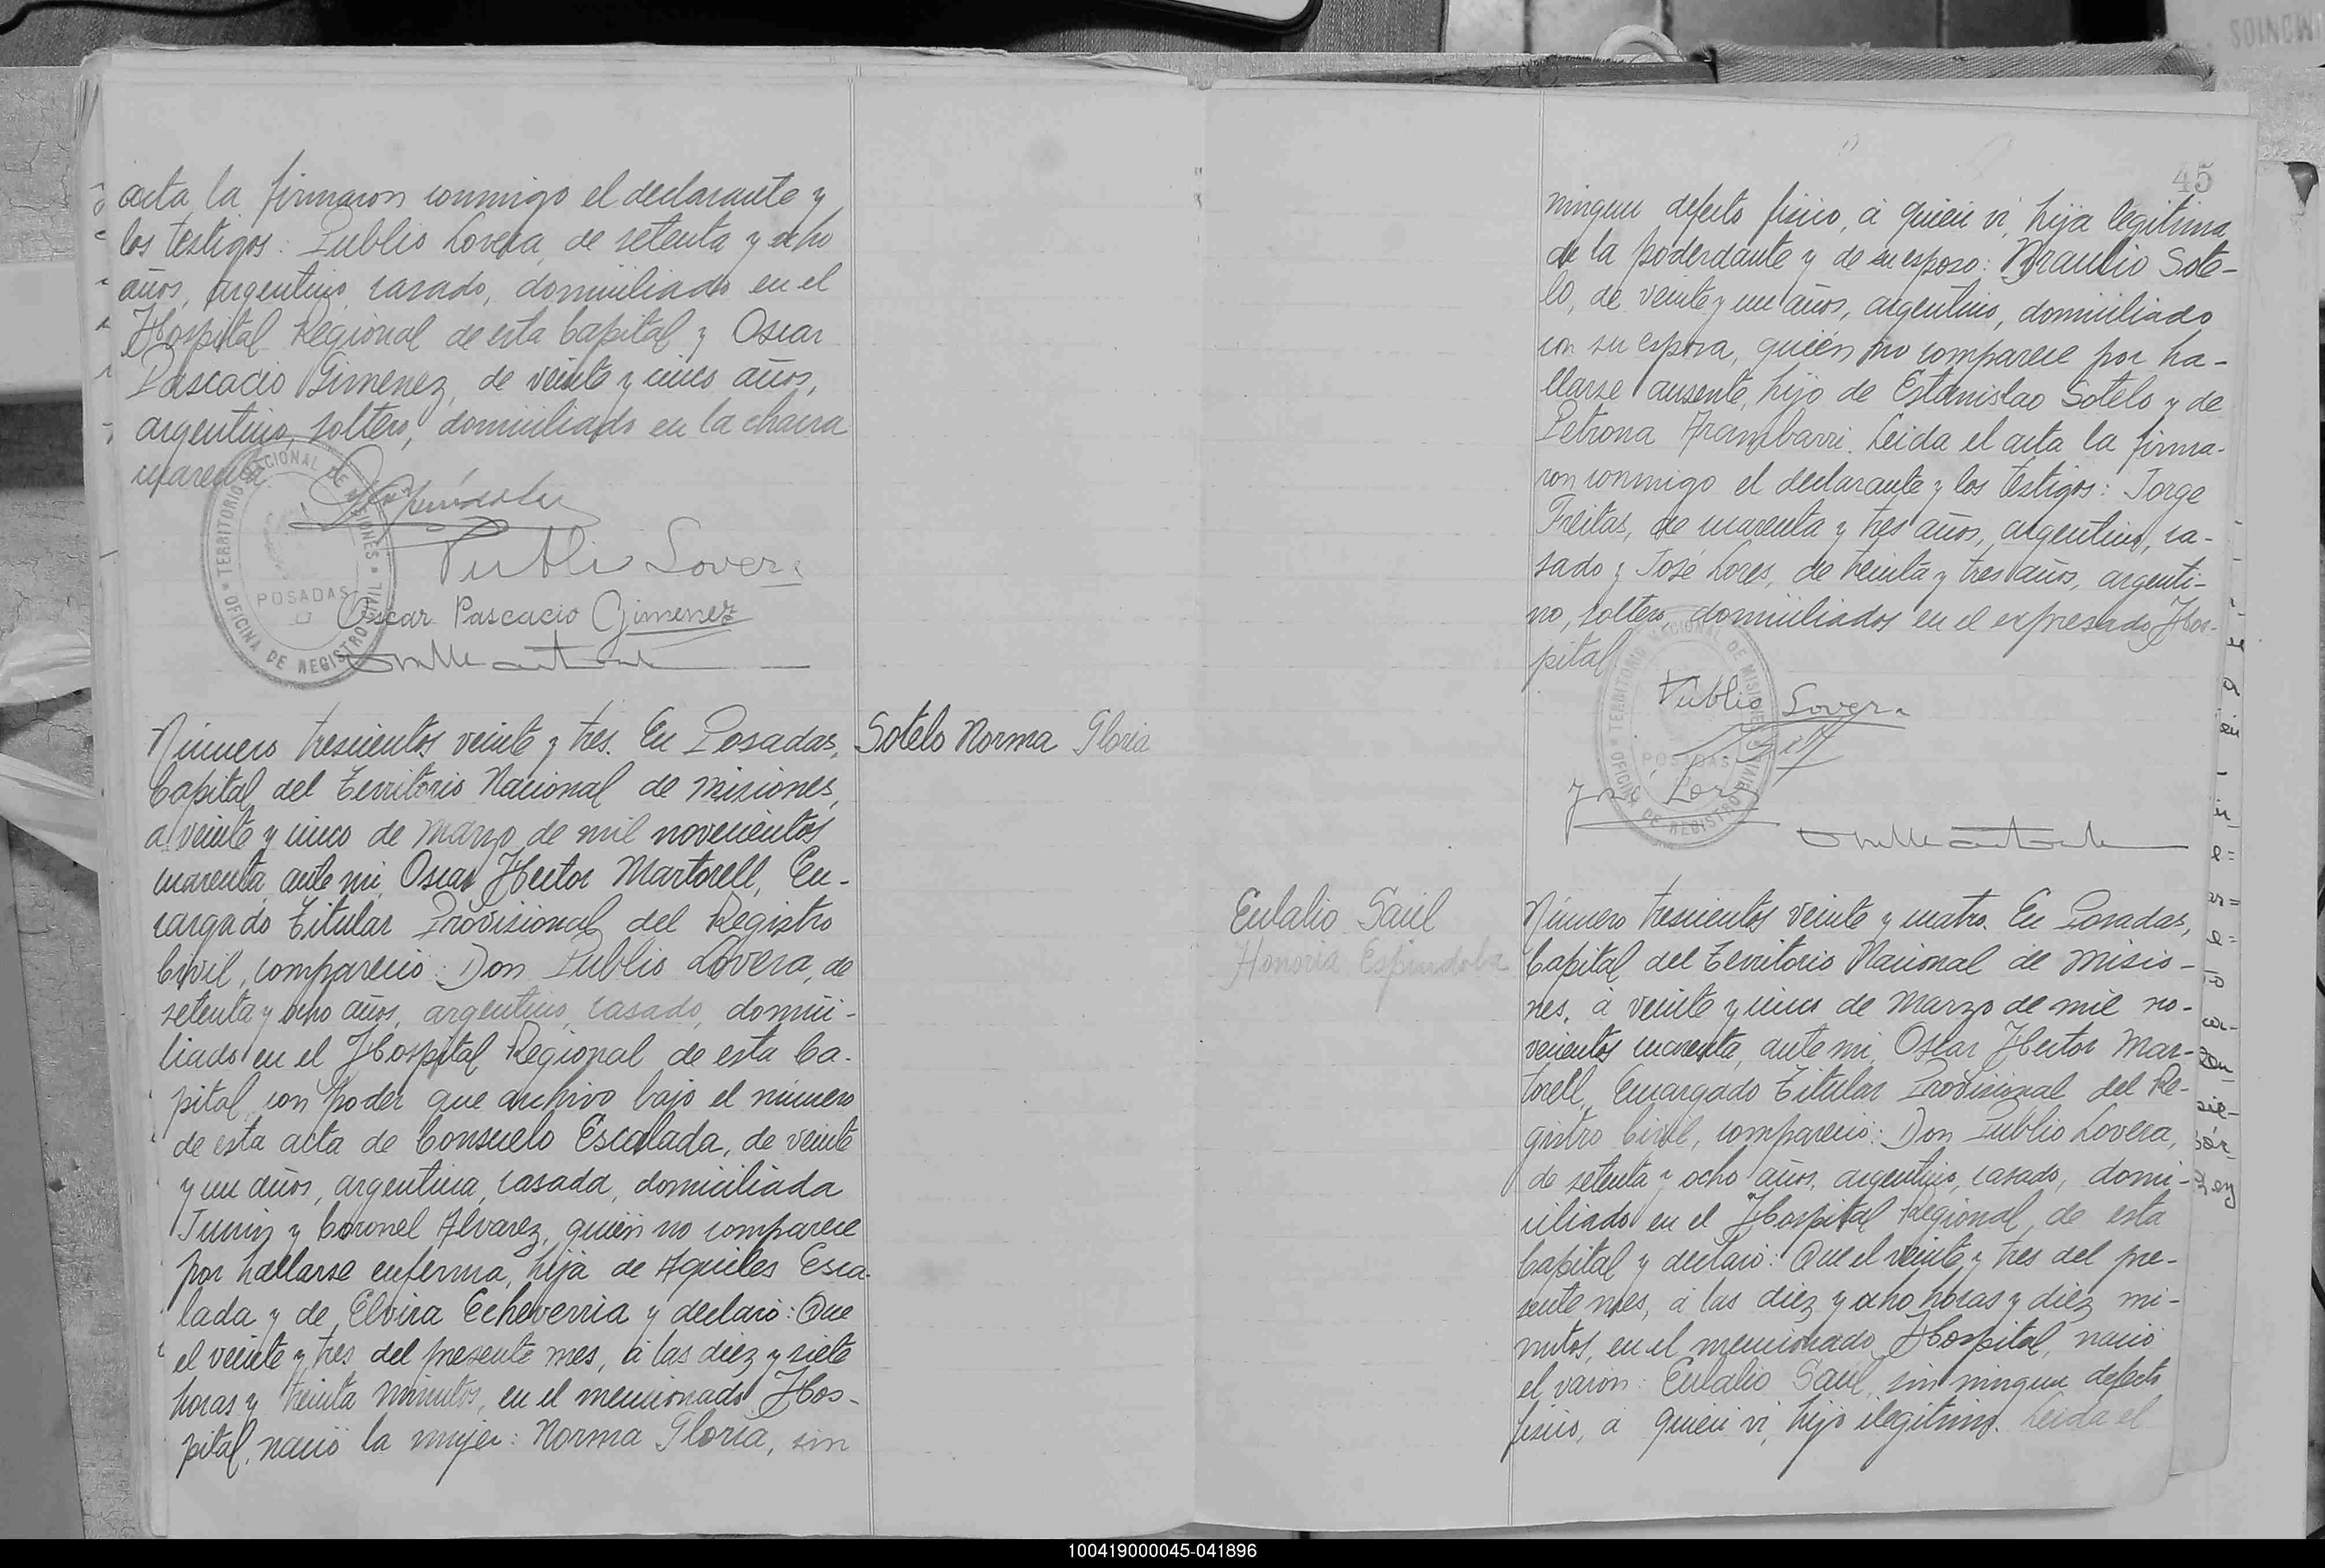 acta la firmaron conmigo el declarante y
los testigos: Publio Lovera, de setenta y ocho
años, argentino, casado, domiciliado en el
Hospital Regional de esta Capital y Oscar
Pascacio Gimenez, de veinte y cinco años,
argentino, soltero, domiciliado en la chacra
cuarenta.
TERRITORIO NACIONAL DE MISIONES
POSADAS
OFICINA DE REGISTRO CIVIL
Publi Lovera
Oscar Pascacio Gimenez
Número trescientos veinte y tres. En Posadas,
Capital del Territorio Nacional de Misiones,
a veinte y cinco de Marzo de mil novecientos
cuarenta, ante mi, Oscar Hector Martorell, En-
cargado Titular Provisional del Registro
Civil, compareció: Don Publio Lovera, de
setenta y ocho años, argentino, casado, domici-
liado en el Hospital Regional de esta Ca-
pital, con poder que archivo bajo el número
de esta acta de Consuelo Escalada, de veinte
y un años, argentina, casada, domiciliada
Junin y Coronel Alvarez, quién no comparece
por hallarse enferma, hija de Aquiles Esca-
lada y de Elvira Echeverria y declaró: Que
el veinte y tres del presente mes, á las diez y siete
horas y treinta minutos, en el mencionado Hos-
pital, nació la mujer: Norma Gloria, sin
Sotelo Norma Gloria
45
ningun defecto fisico, á quien vi, hija legitima
de la poderdante y de su esposo: Braulio Sote-
lo, de veinte y un años, argentino, domiciliado
con su esposa, quién no comparece por ha-
llarse ausente, hijo de Estanislao Sotelo y de
Petrona Arambarri. Leida el acta la firma-
ron conmigo el declarante y los testigos: Jorge
Freitas, de cuarenta y tres años, argentino, ca-
sado y José Lores, de treinta y tres años, argenti-
no, soltero, domiciliados en el expresado Hos-
pital.
TERRITORIO NACIONAL DE MISIONES
POSADAS
OFICINA DE REGISTRO CIVIL
Publio Lovera
José Lores
Eulalio Saúl
Honoria Espindola
Número trescientos veinte y cuatro. En Posadas,
Capital del Territorio Nacional de Misio-
nes, á veinte y cinco de Marzo de mil no-
vecientos cuarenta, ante mi, Oscar Hector Mar-
torell, Encargado Titular Provisional del Re-
gistro Civil, compareció: Don Publio Lovera,
de setenta y ocho años, argentino, casado, domi-
ciliado en el Hospital Regional, de esta
Capital y declaró: Que el veinte y tres del pre-
sente mes, á las diez y ocho horas y diez mi-
nutos, en el mencionado Hospital, nació
el varon: Eulalio Saúl, sin ningun defecto
fisico, á quien vi, hijo ilegitimo. Leida el
100419000045-041896